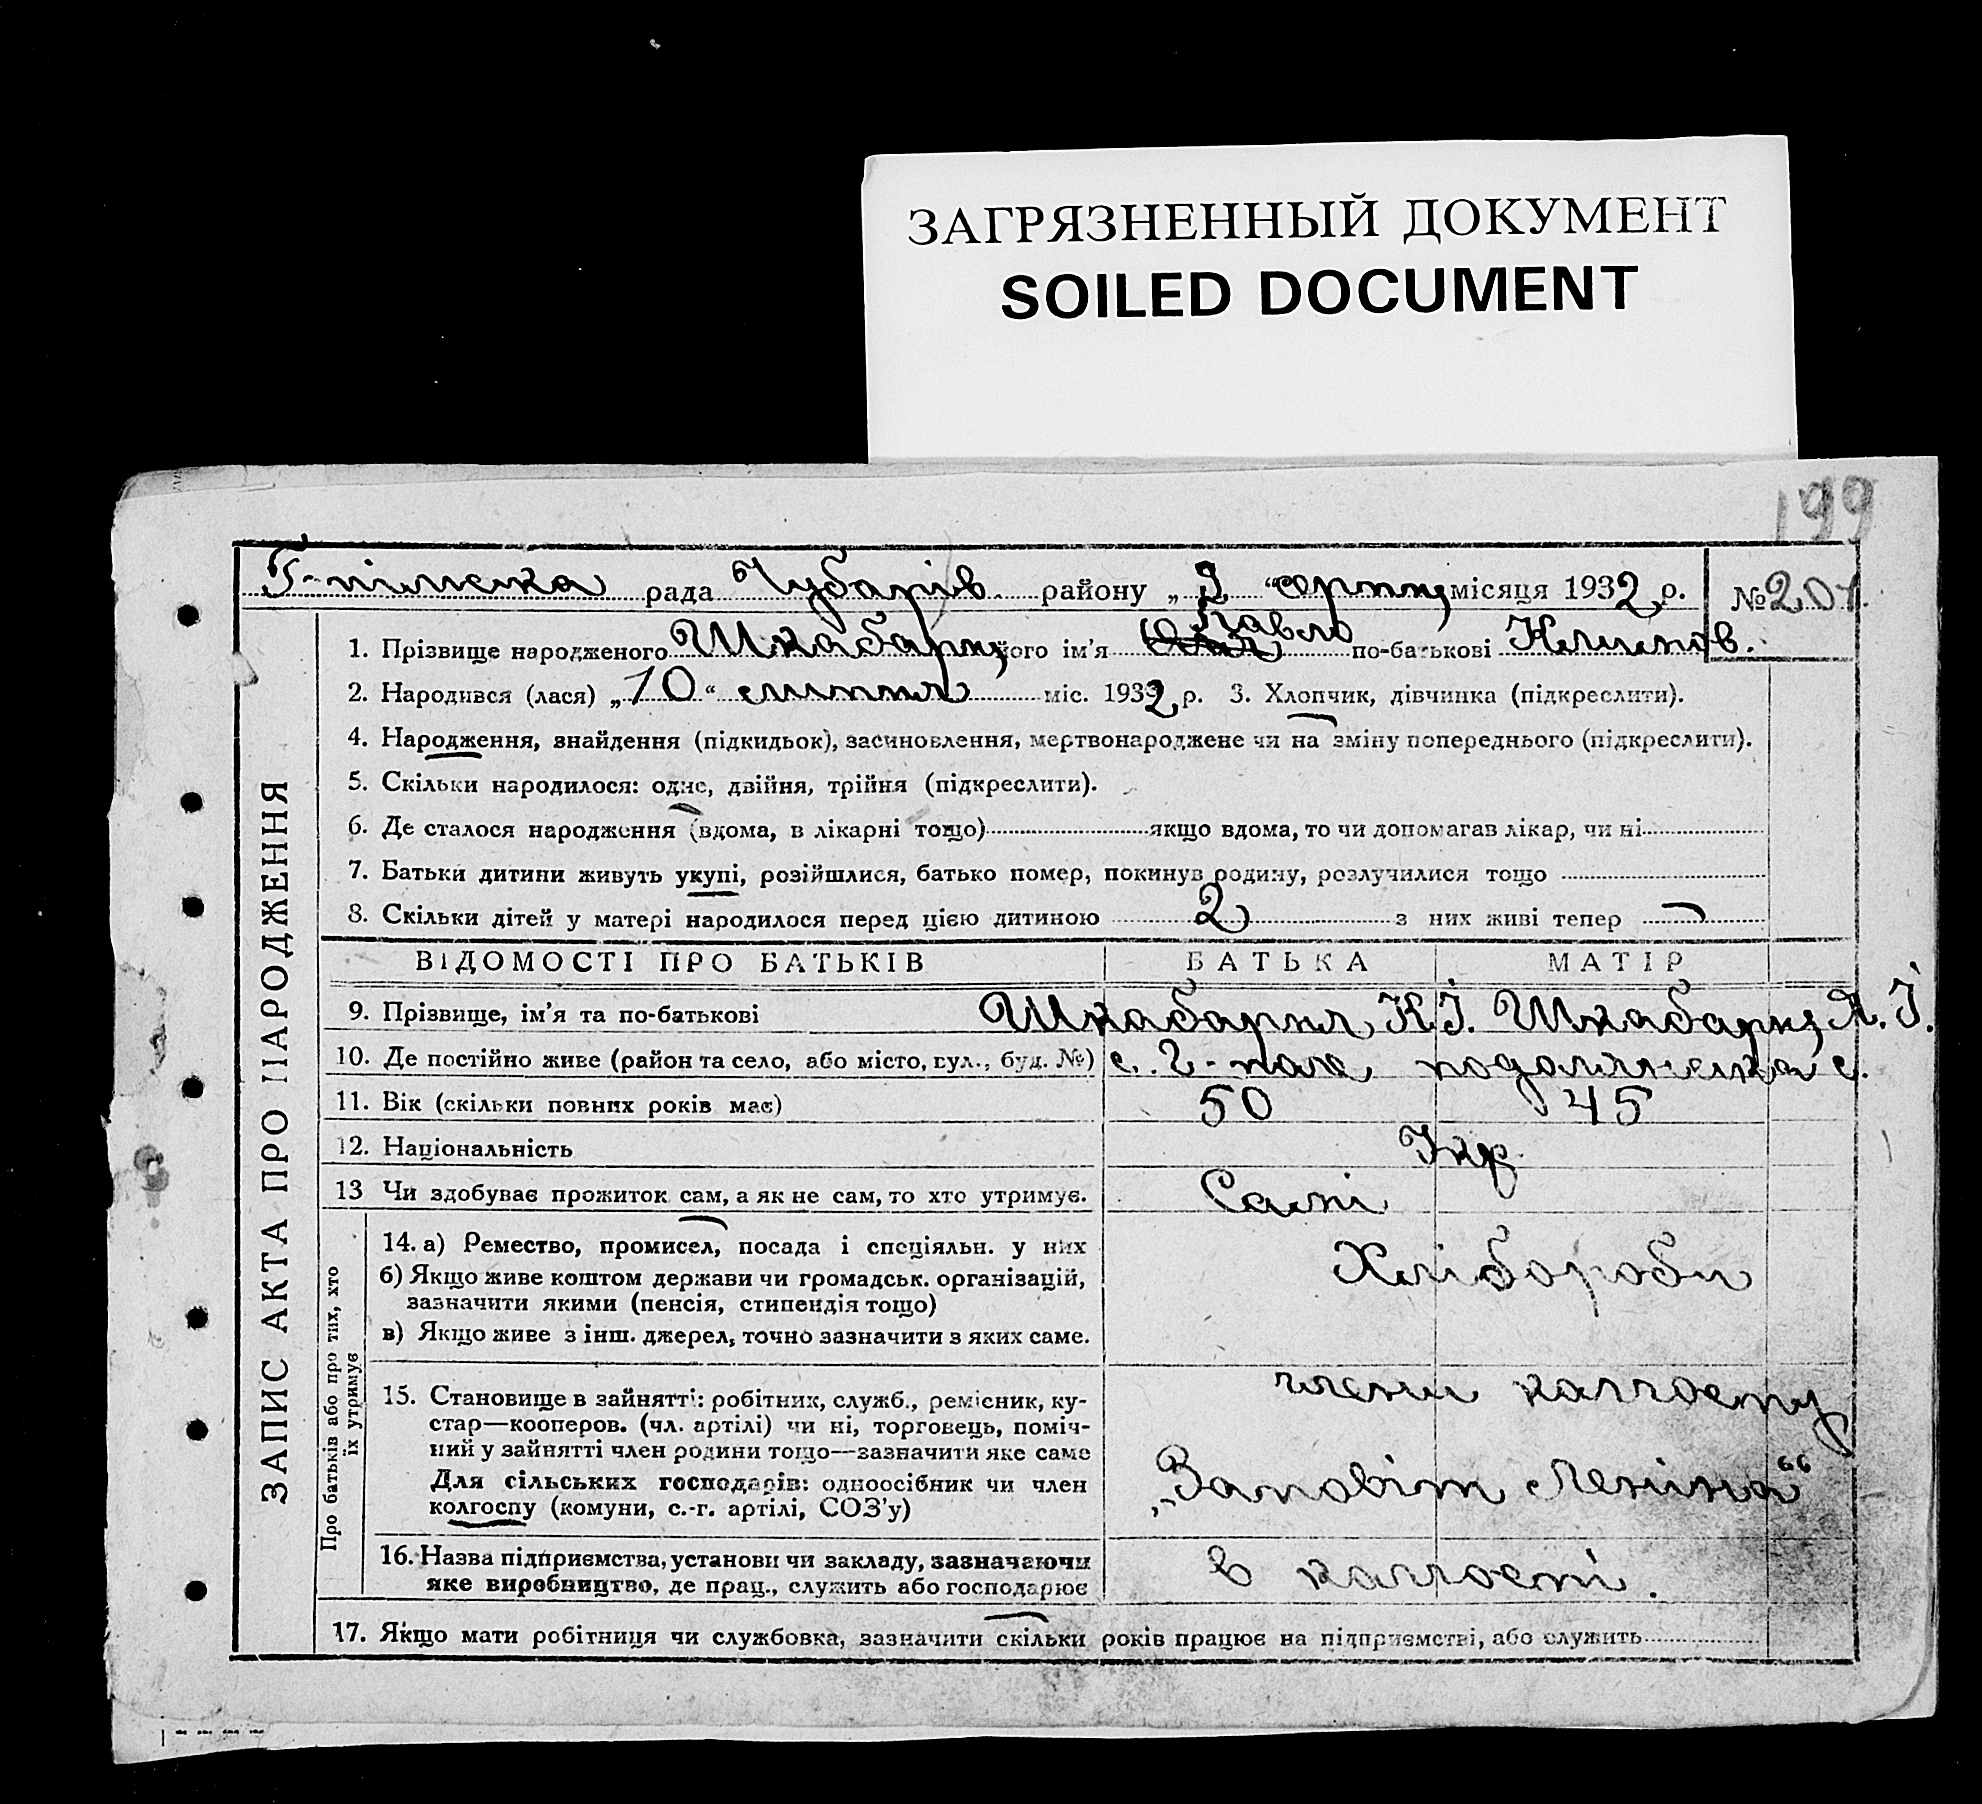 ЗАГРЯЗНЕННЫЙ ДОКУМЕНТ
SOILED DOCUMENT
199
Г-пільська рада Чубарів. району „2“ серпня місяця 1932 р. № 201.
1. Прізвище народженого Шкабаря його ім'я Павло по-батькові Климов.
2. Народився (лася) „10“ липня міс. 1932 р. 3. Хлопчик, дівчинка (підкреслити).
4. Народження, знайдення (підкидьок), засиновлення, мертвонароджене чи на зміну попереднього (підкреслити).
5. Скільки народилося: одне, двійня, трійня (підкреслити).
6. Де сталося народження (вдома, в лікарні тощо) якщо вдома, то чи допомагав лікар, чи ні
7. Батьки дитини живуть укупі, розійшлися, батько помер, покинув родину, розлучилися тощо
8. Скільки дітей у матері народилося перед цією дитиною 2 з них живі тепер —
ВІДОМОСТІ ПРО БАТЬКІВ БАТЬКА МАТІР
9. Прізвище, ім'я та по-батькові Шкабаря К.І. Шкабаря Я. І.
10. Де постійно живе (район та село, або місто, вул., буд. №) с. Г-поле,
11. Вік (скільки повних років має) 50 45
12. Національність Укр.
13 Чи здобуває прожиток сам, а як не сам, то хто утримує. Самі
14. а) Ремество, промисел, посада і спеціяльн. у них Хлібороби
б) Якщо живе коштом держави чи громадськ. організацій,
зазначити якими (пенсія, стипендія тощо)
в) Якщо живе з інш. джерел, точно зазначити з яких саме.
15. Становище в зайнятті: робітник, служб., ремісник, ку-
стар—кооперов. (чл. артілі) чи ні, торговець, поміч-
ний у зайнятті член родини тощо—зазначити яке саме
Для сільських господарів: одноосібник чи член
колгоспу (комуни, с.-г. артілі, СОЗ'у)
члени колгоспу
„Заповіт Леніна“
16. Назва підприємства, установи чи закладу, зазначаючи
яке виробництво, де прац., служить або господарює
в колгоспі.
17. Якщо мати робітниця чи службовка, зазначити скільки років працює на підприємстві, або служить
ЗАПИС АКТА ПРО НАРОДЖЕННЯ
Про батьків або про тих, хто
їх утримує